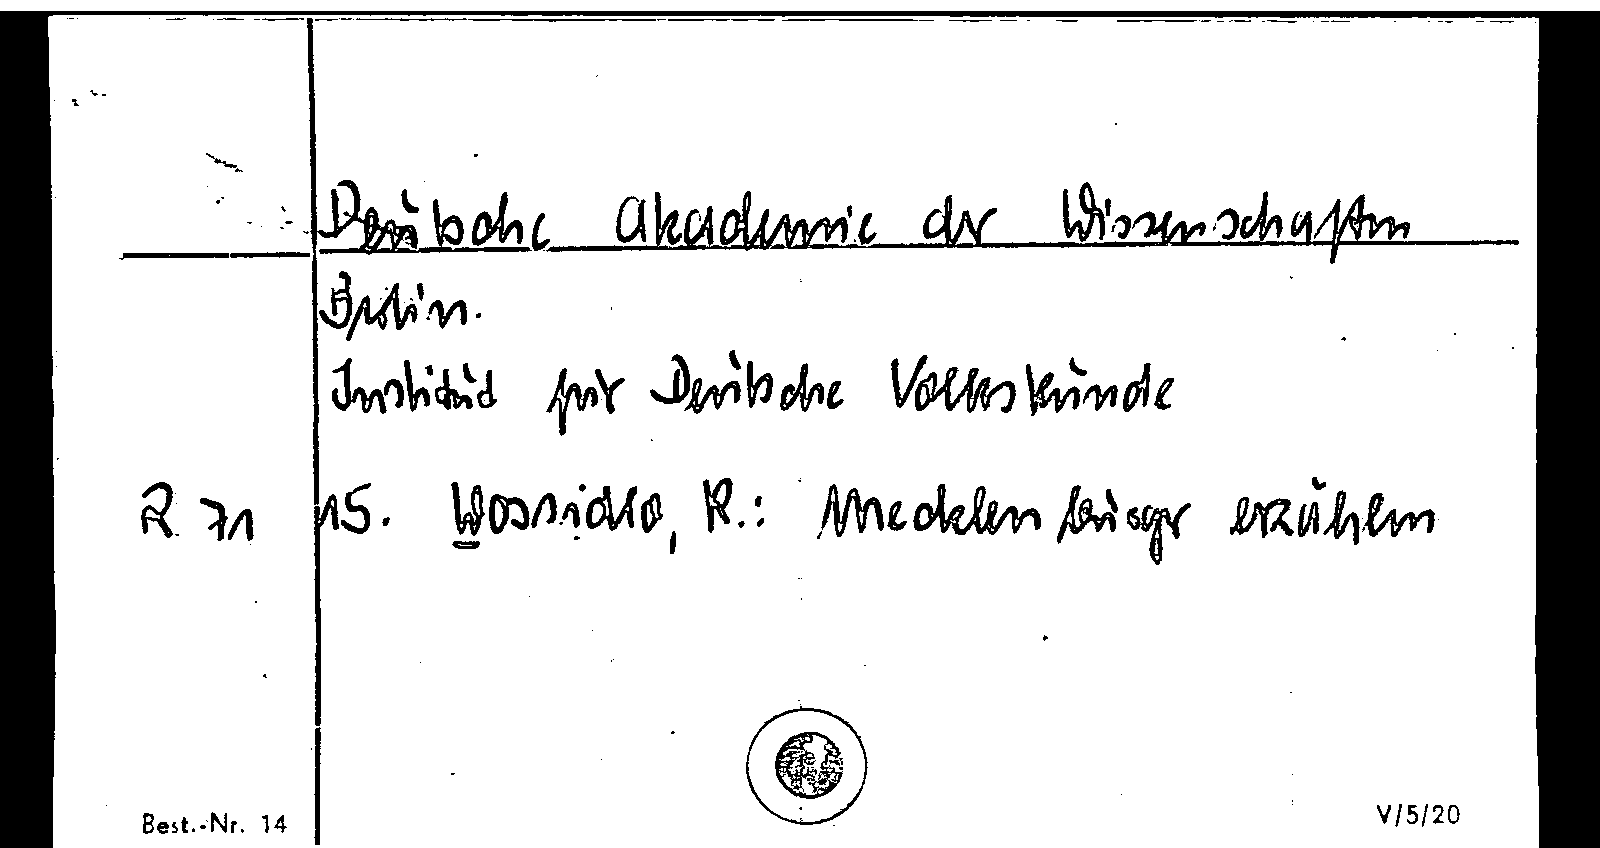 Deutsche Akademie der Wissenschaften
Berlin.
Institut für Deutsche Volkskunde
R 71 15. Wossidlo, R.: Mecklenburger erzählen
Best.-Nr. 14 V/5/20